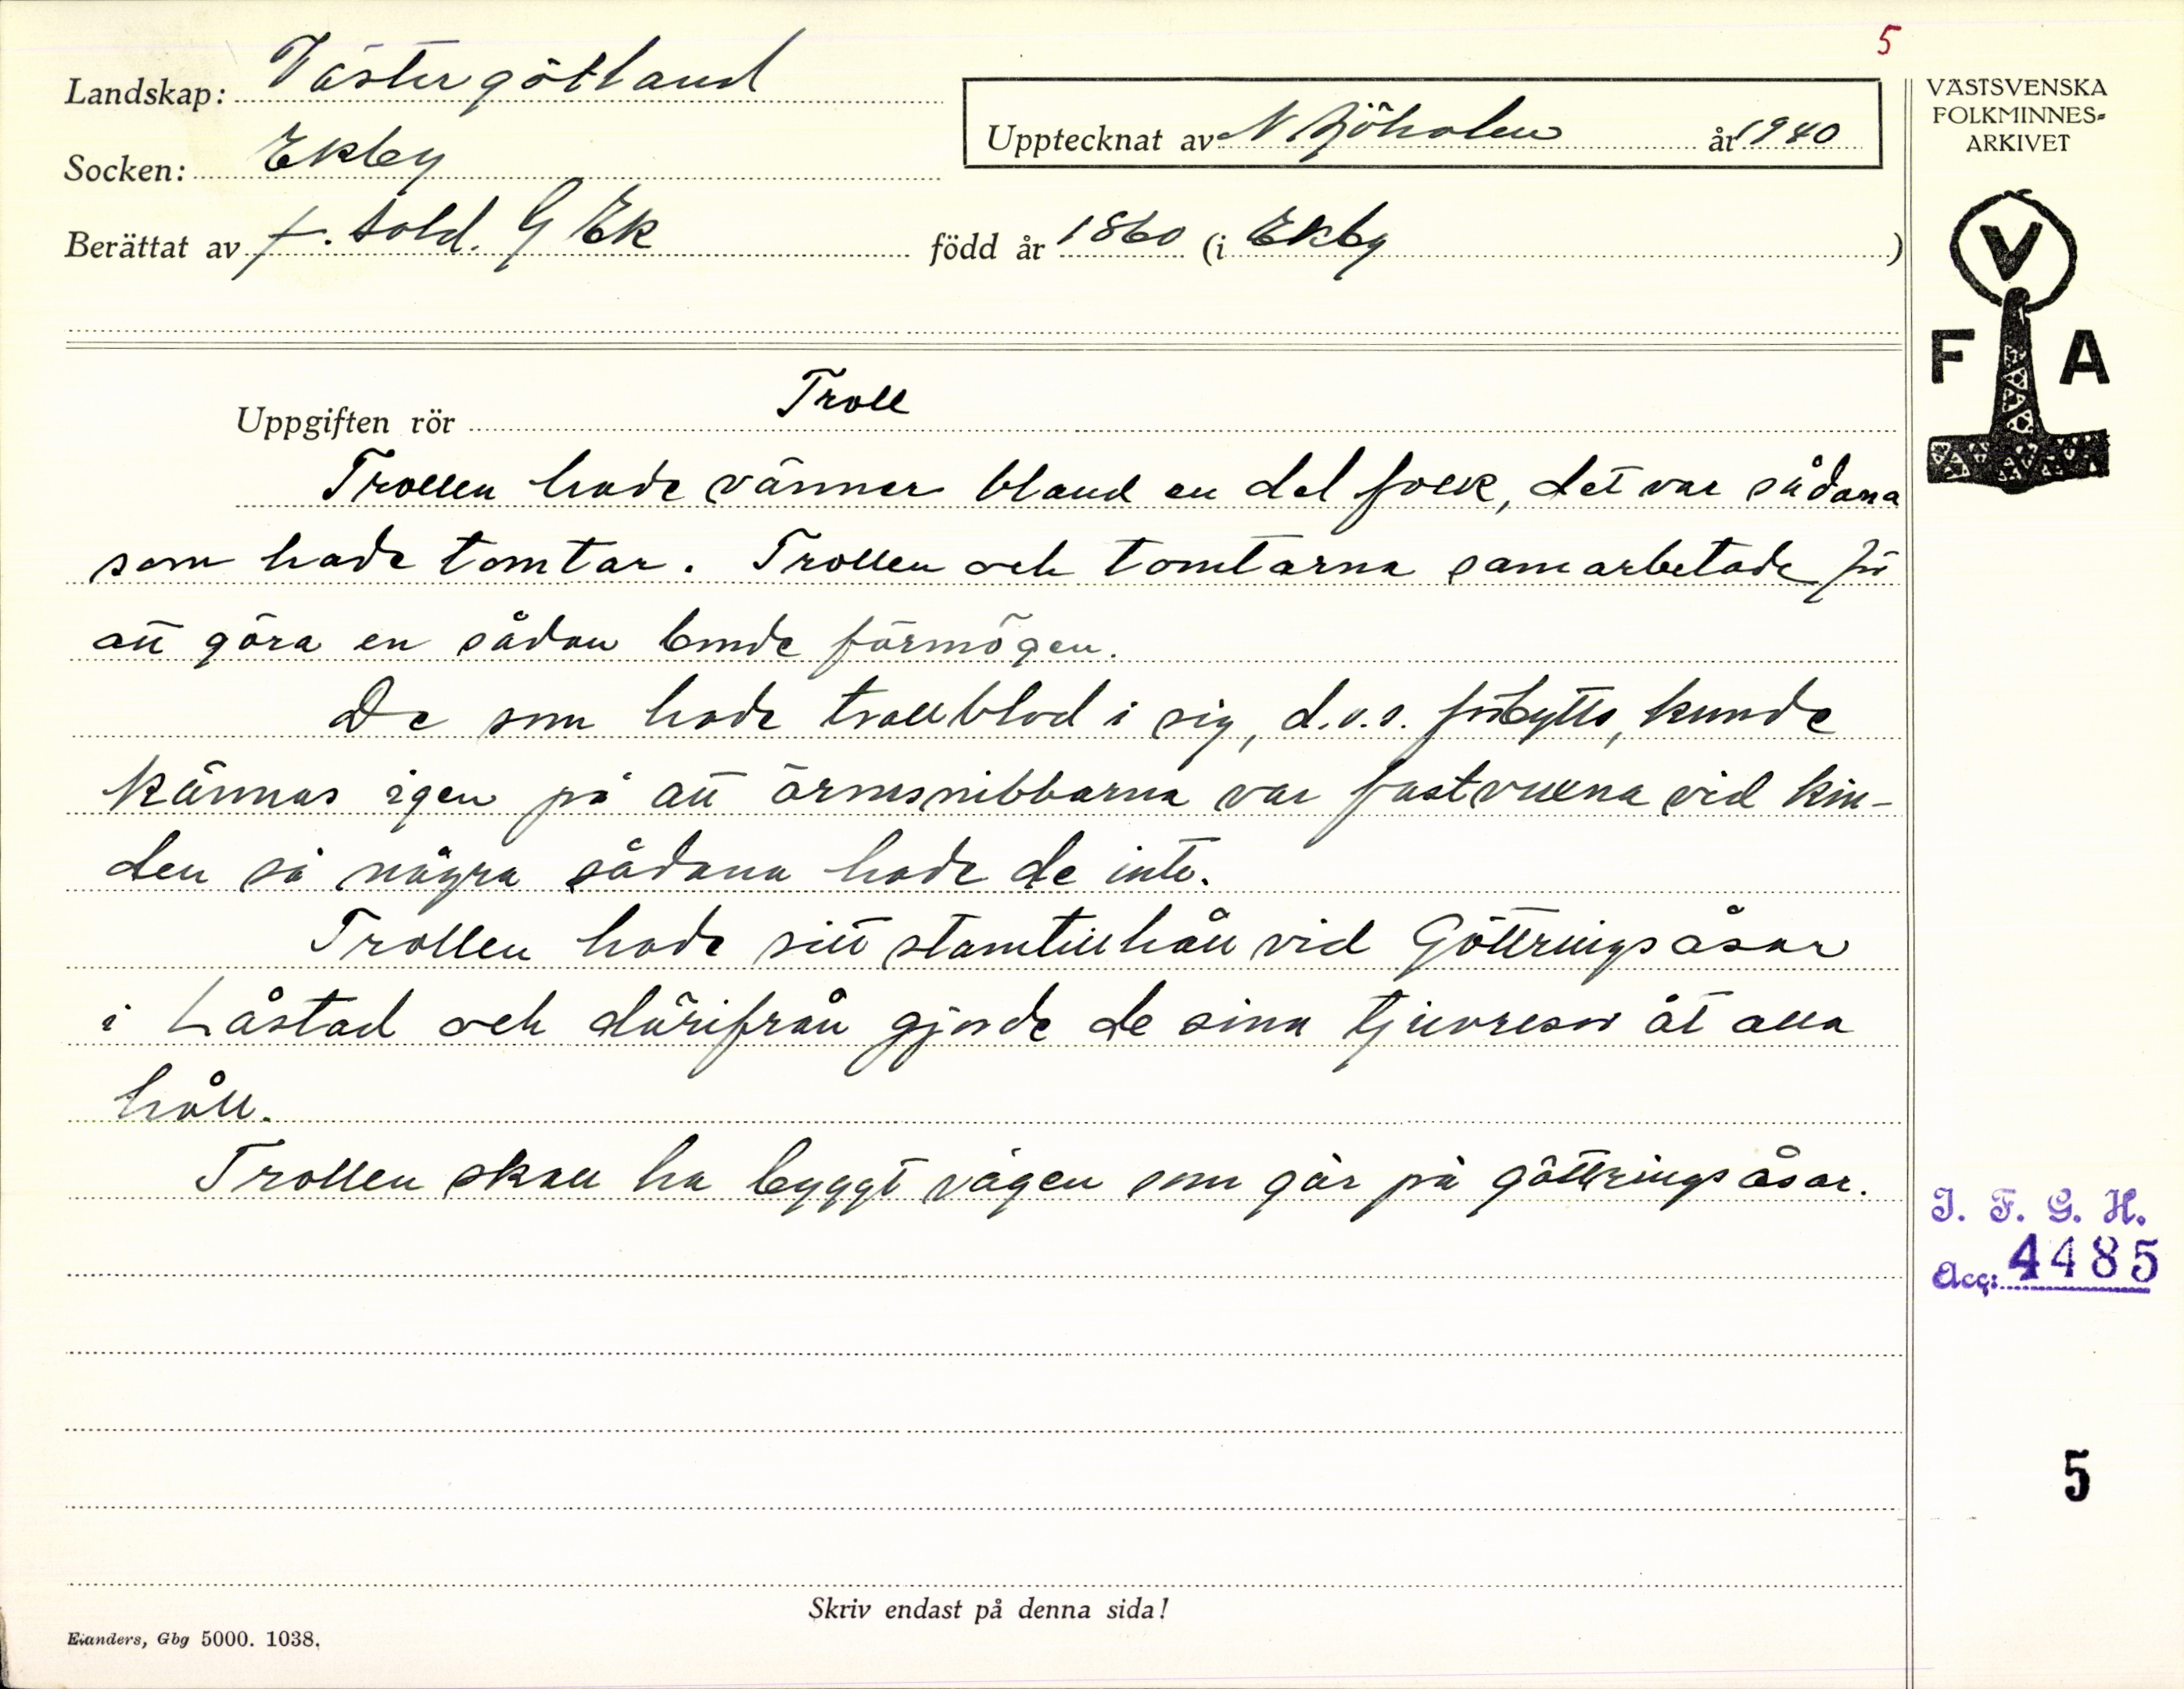 5
Landskap: Västergötland
Socken: Ekby
Berättat av f. sold. G Ek född år 1860 (i Ekby )
Upptecknat av N Sjöholm år 1940
VÄSTSVENSKA
FOLKMINNES=
ARKIVET
V
F A
Uppgiften rör Troll
Trollen hade vänner bland en del folk, det var sådana
som hade tomtar. Trollen och tomtarna samarbetade för
att göra en sådan bonde förmögen.
De som hade trollblod i sig, d.v.s. förbytts, kunde
kännas igen på att örmsnibbarna var fastvuxna vid kin-
den så några sådana hade de inte.
Trollen hade sitt stamtillhåll vid Göttringsåsar
i Låstad och därifrån gjorde de sina tjuvresor åt alla
håll.
Trollen skall ha byggt vägen som går på göttringsåsar.
I. F. G. H.
Acc: 4485
5
Skriv endast på denna sida!
Elanders, Gbg 5000. 1038.